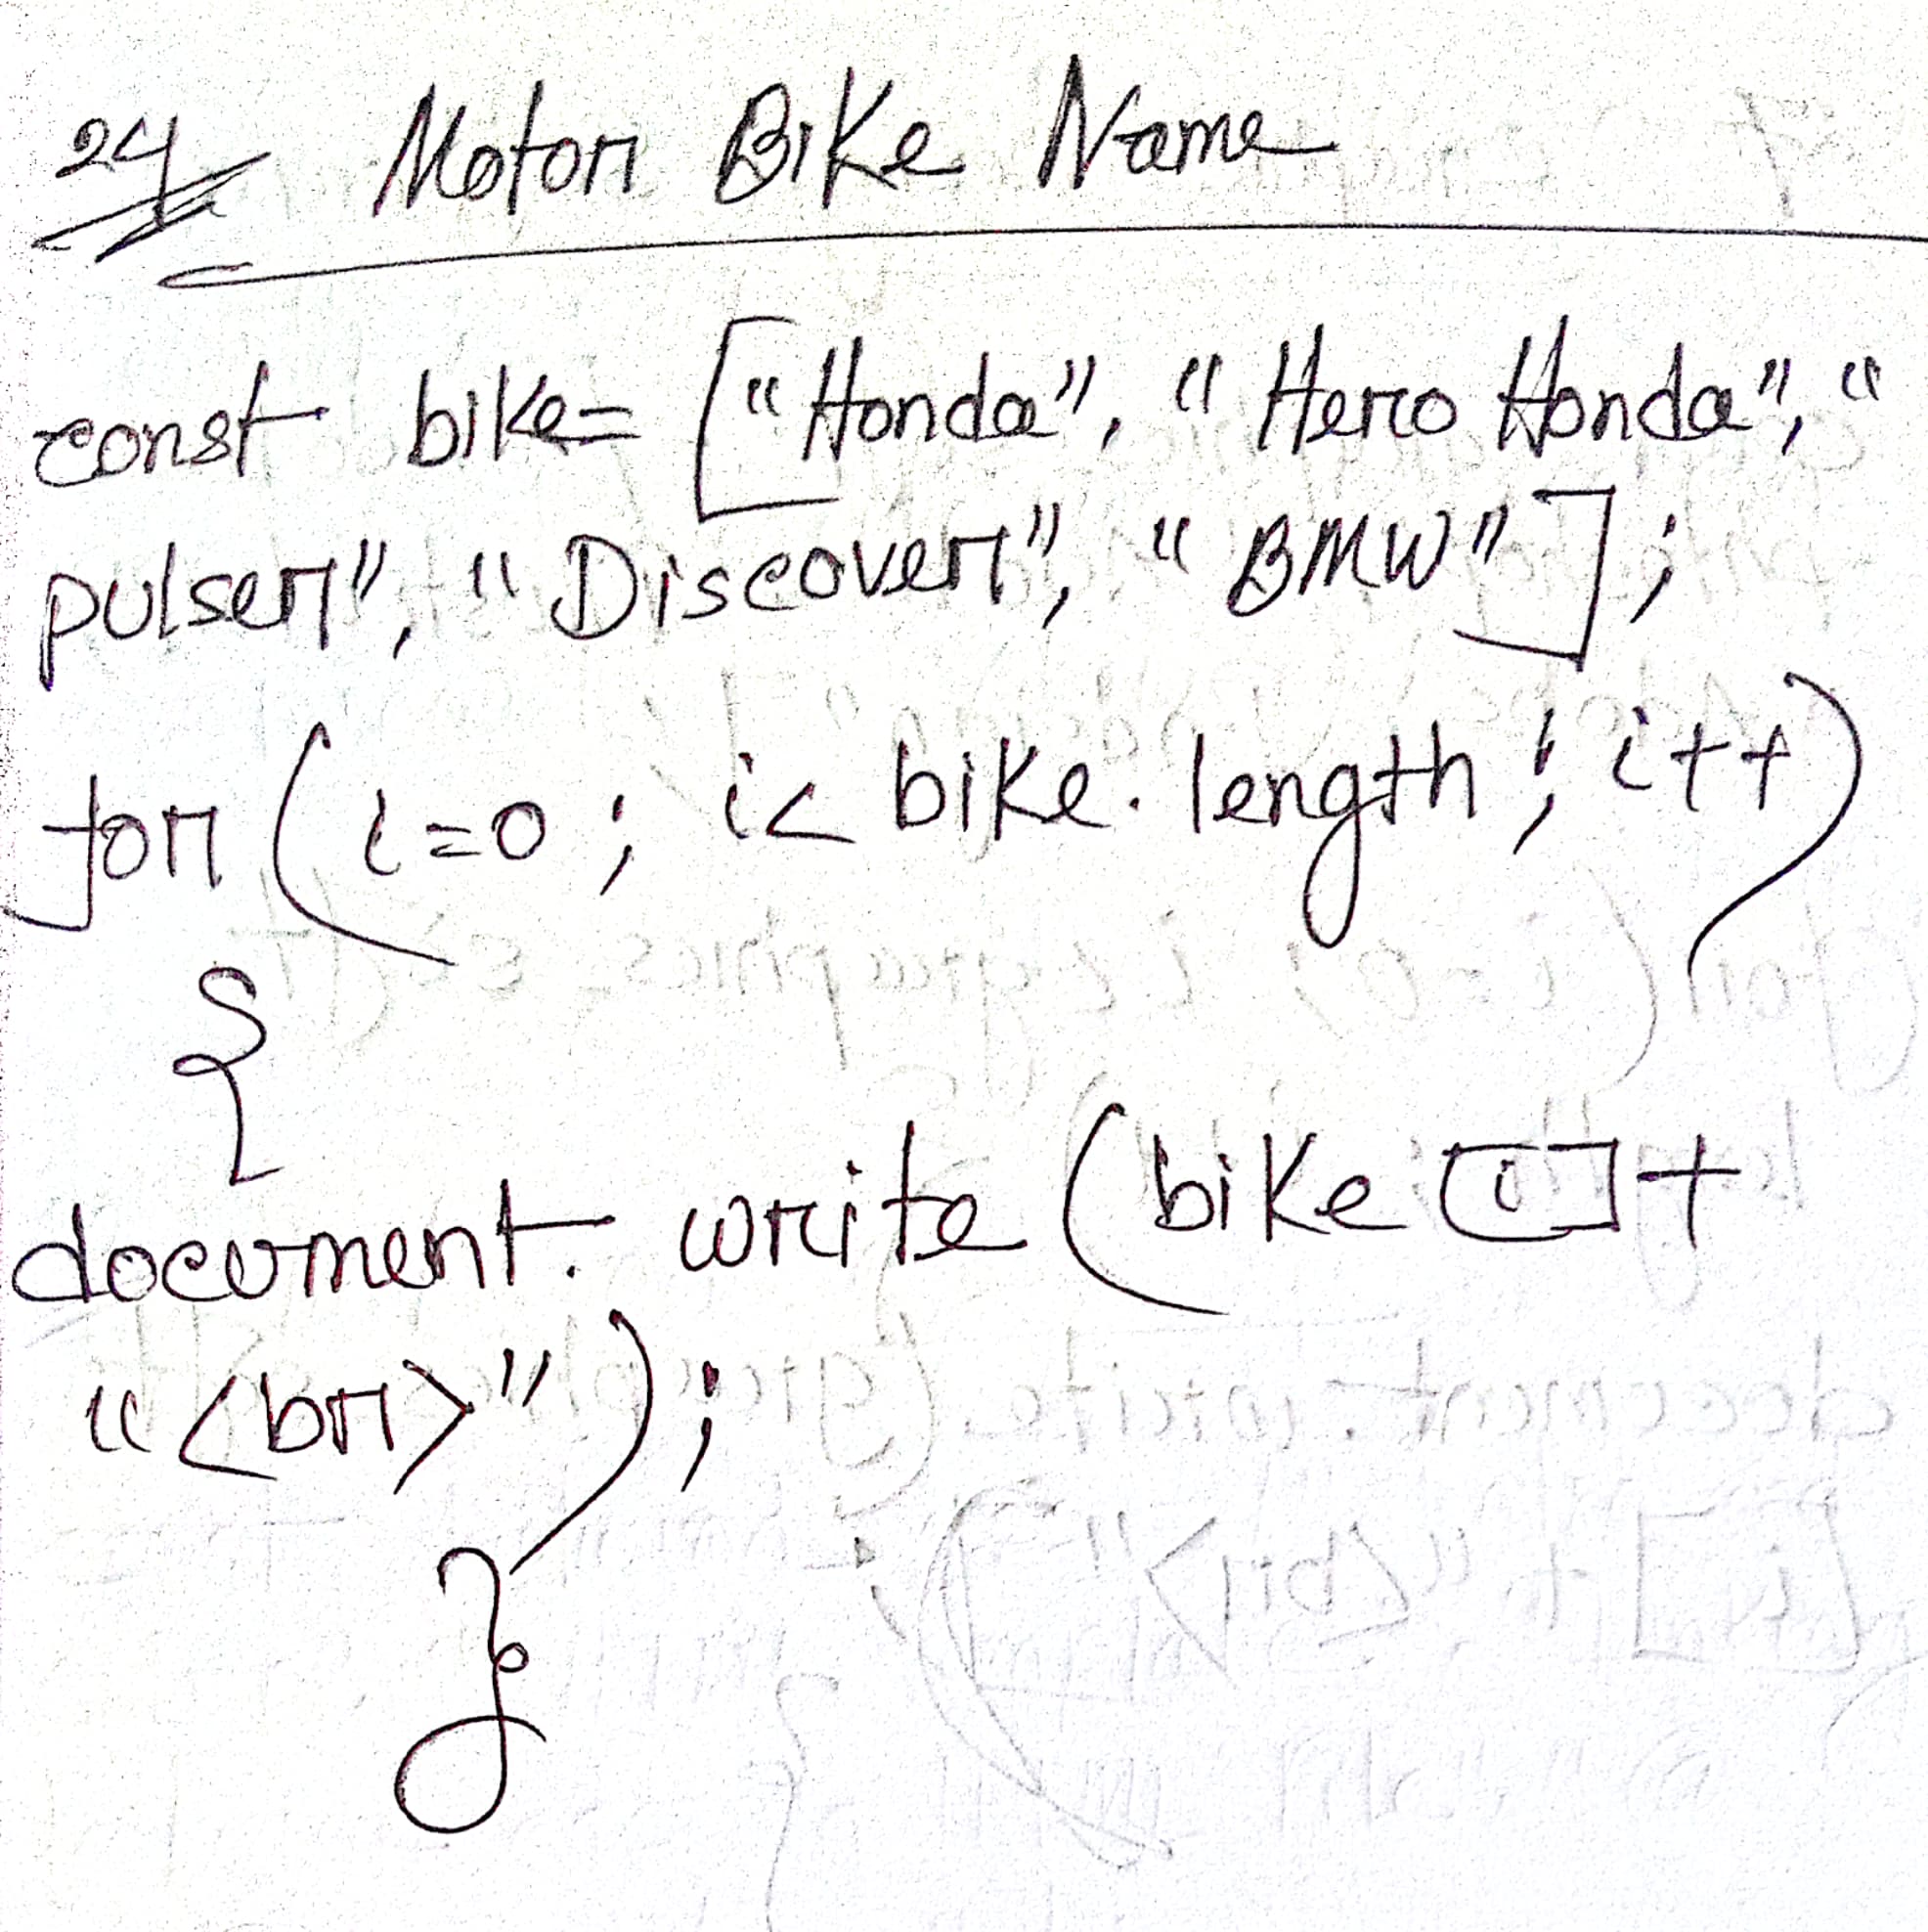 24 Motor Bike Name
const bike= ["Honda", "Hero Honda", "
pulser", "Discover", "BMW"];
for (i=0; i< bike.length; i++)
{
document.write (bike [i]+
"<br>");
}